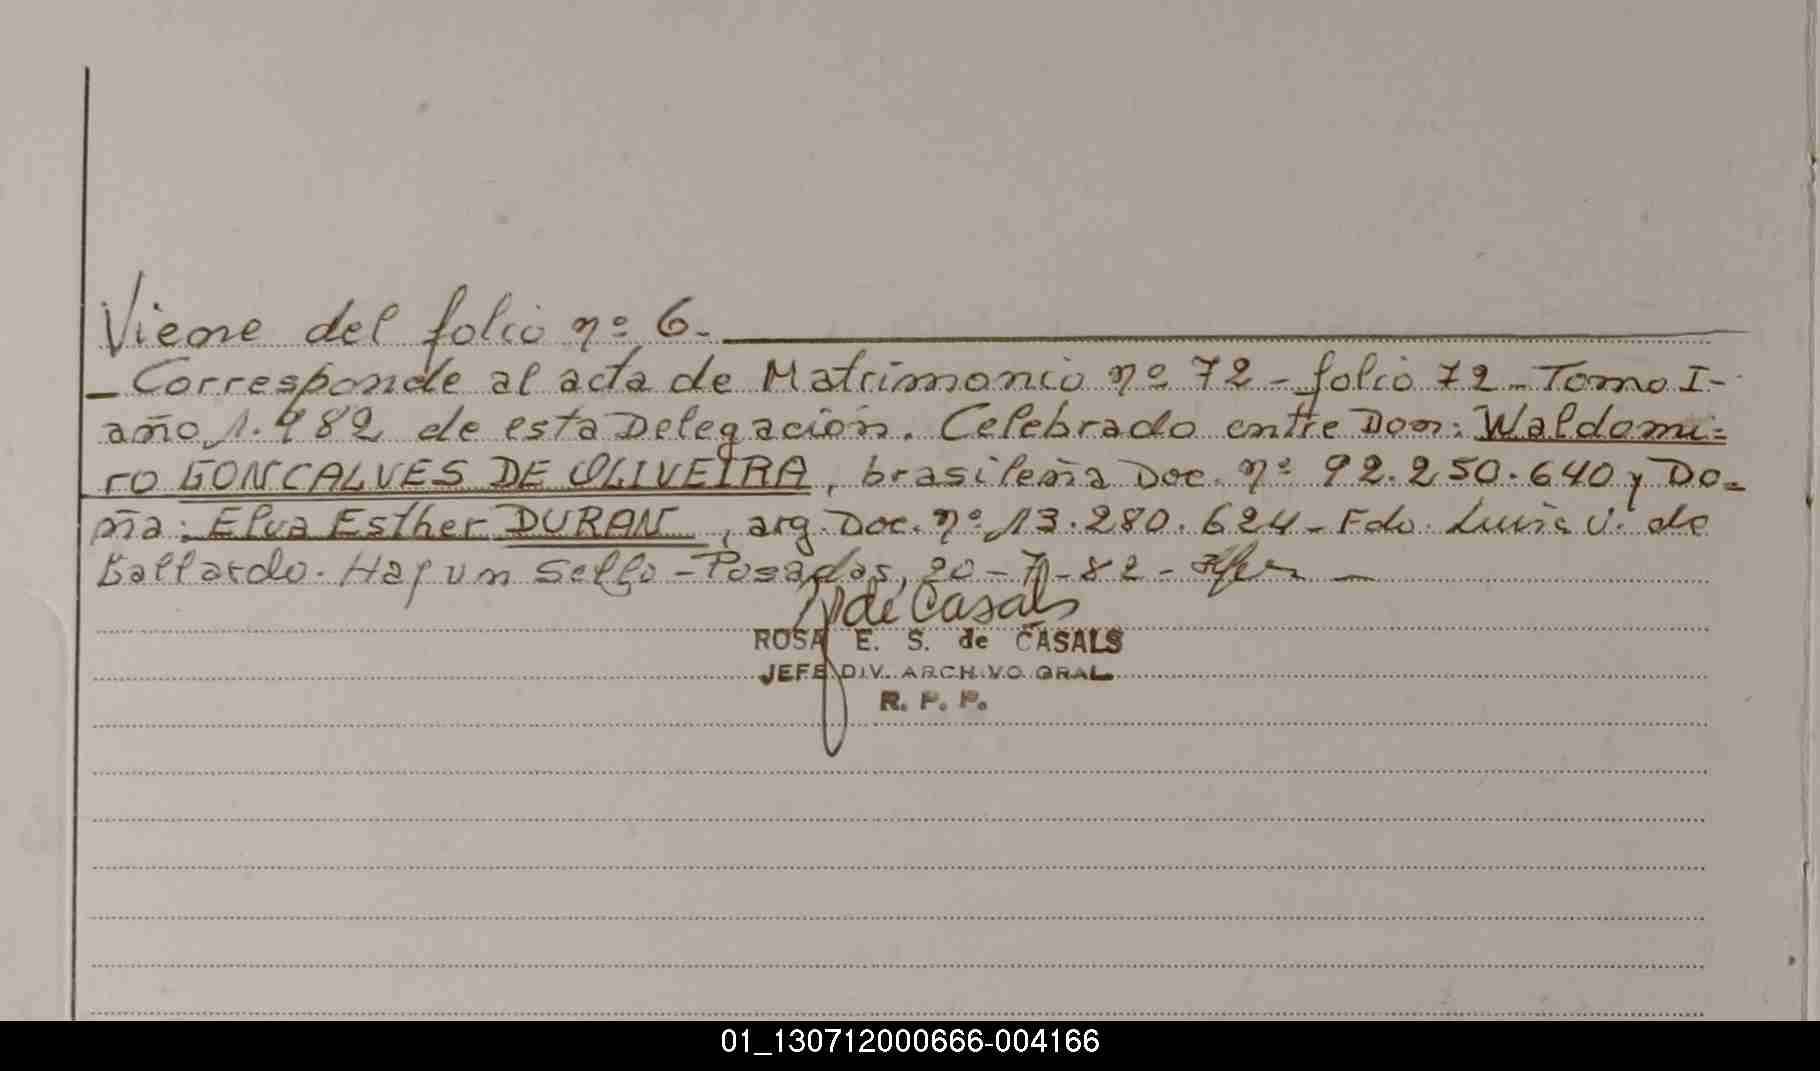 Viene del folio nº 6.-
- Corresponde al acta de Matrimonio nº 72 - folio 72 - Tomo I-
año 1.982 de esta Delegación. Celebrado entre Don: Waldomi=
ro GONCALVES DE OLIVEIRA, brasileña Doc. nº 92.250.640 y Do=
ña: Elva Esther DURAN, arg. Doc. nº 13.280.624 - Fdo. Luis V. de
Gallardo. Hay un Sello - Posadas, 20-7-82-
de Casals
ROSA E. S. de CASALS
JEFE DIV. ARCHIVO GRAL
R. P. P.
01_130712000666-004166